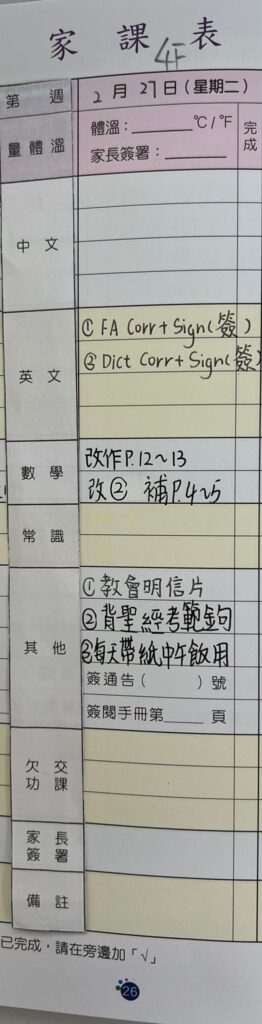 家課表
4F
第 週 2月27日(星期二)
量體溫 體溫:______℃/℉ 完成
家長簽署:______
中文
英文 ① FA Corr + Sign(簽)
② Dict Corr + Sign(簽)
數學 改作P.12~13
改② 補P.4~5
常識
其他 ①教會明信片
②背聖經考範金句
③每天帶紙中午飯用
簽通告( )號
簽閱手冊第____頁
欠交功課
家長簽署
備註
已完成,請在旁邊加「√」
26